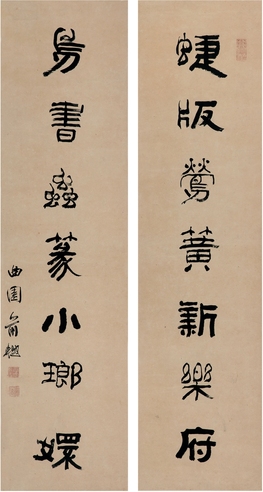 蜨版鶯簧新樂府
鳥書蟲篆小瑯嬛
曲園俞樾